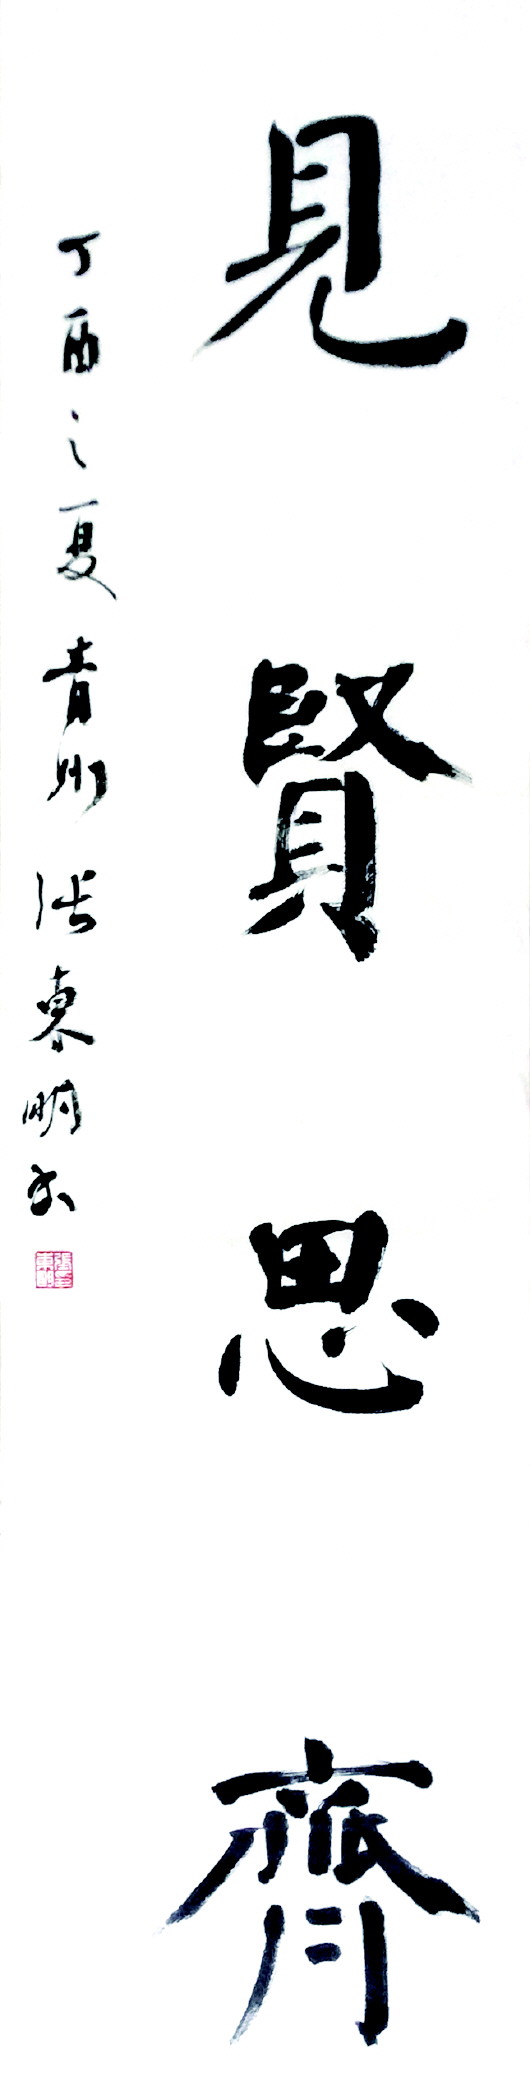 見賢思齊
丁酉之夏青州張東明書